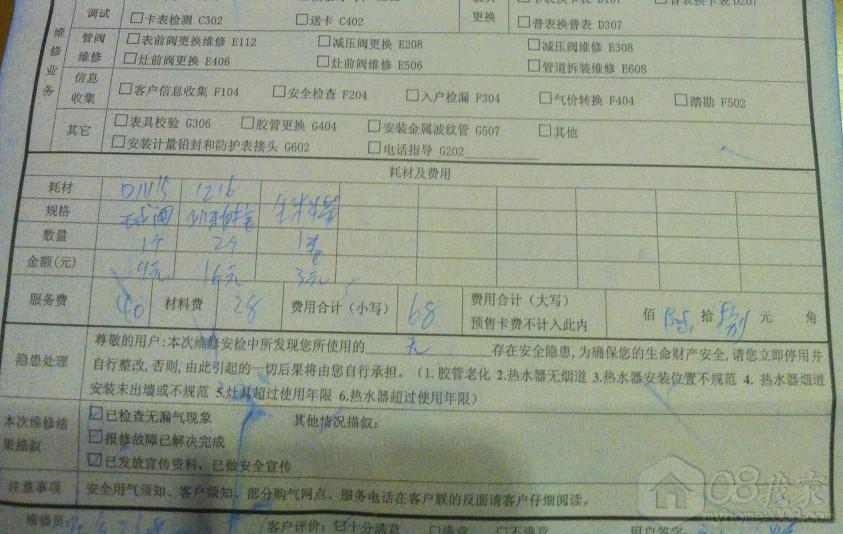 调试 □卡表检测 C302 □送卡 C402 更换 □普表换普表 D307
维修业务
管阀维修 □表前阀更换维修 E112 □减压阀更换 E208 □减压阀维修 E308
□灶前阀更换 E406 □灶前阀维修 E506 □管道拆装维修 E608
信息收集 □客户信息收集 F104 □安全检查 F204 □入户检漏 F304 □气价转换 F404 □踏勘 F502
其它 □表具校验 G306 □胶管更换 G404 □安装金属波纹管 G507 □其他
□安装计量铅封和防护表接头 G602 □电话指导 G202
耗材及费用
耗材 1216
规格 球阀 生料带
数量 1个 2个 1卷
金额(元) 9元 16元 3元
服务费 40 材料费 28 费用合计（小写） 68 费用合计（大写） 佰 陆 拾 捌 元 角
预售卡费不计入此内
隐患处理
尊敬的用户:本次维修安检中所发现您所使用的 无 存在安全隐患,为确保您的生命财产安全,请您立即停用并
自行整改,否则,由此引起的一切后果将由您自行承担。（1.胶管老化 2.热水器无烟道 3.热水器安装位置不规范 4. 热水器烟道
安装未出墙或不规范 5.灶具超过使用年限 6.热水器超过使用年限）
本次维修结果描叙
☑已检查无漏气现象 其他情况描叙：
☑报修故障已解决完成
☑已发放宣传资料，已做安全宣传
注意事项 安全用气须知、客户须知、部分购气网点、服务电话在客户联的反面请客户仔细阅读。
维修员： 客户评价：☑十分满意 □满意 □不满意 用户签字
08我家